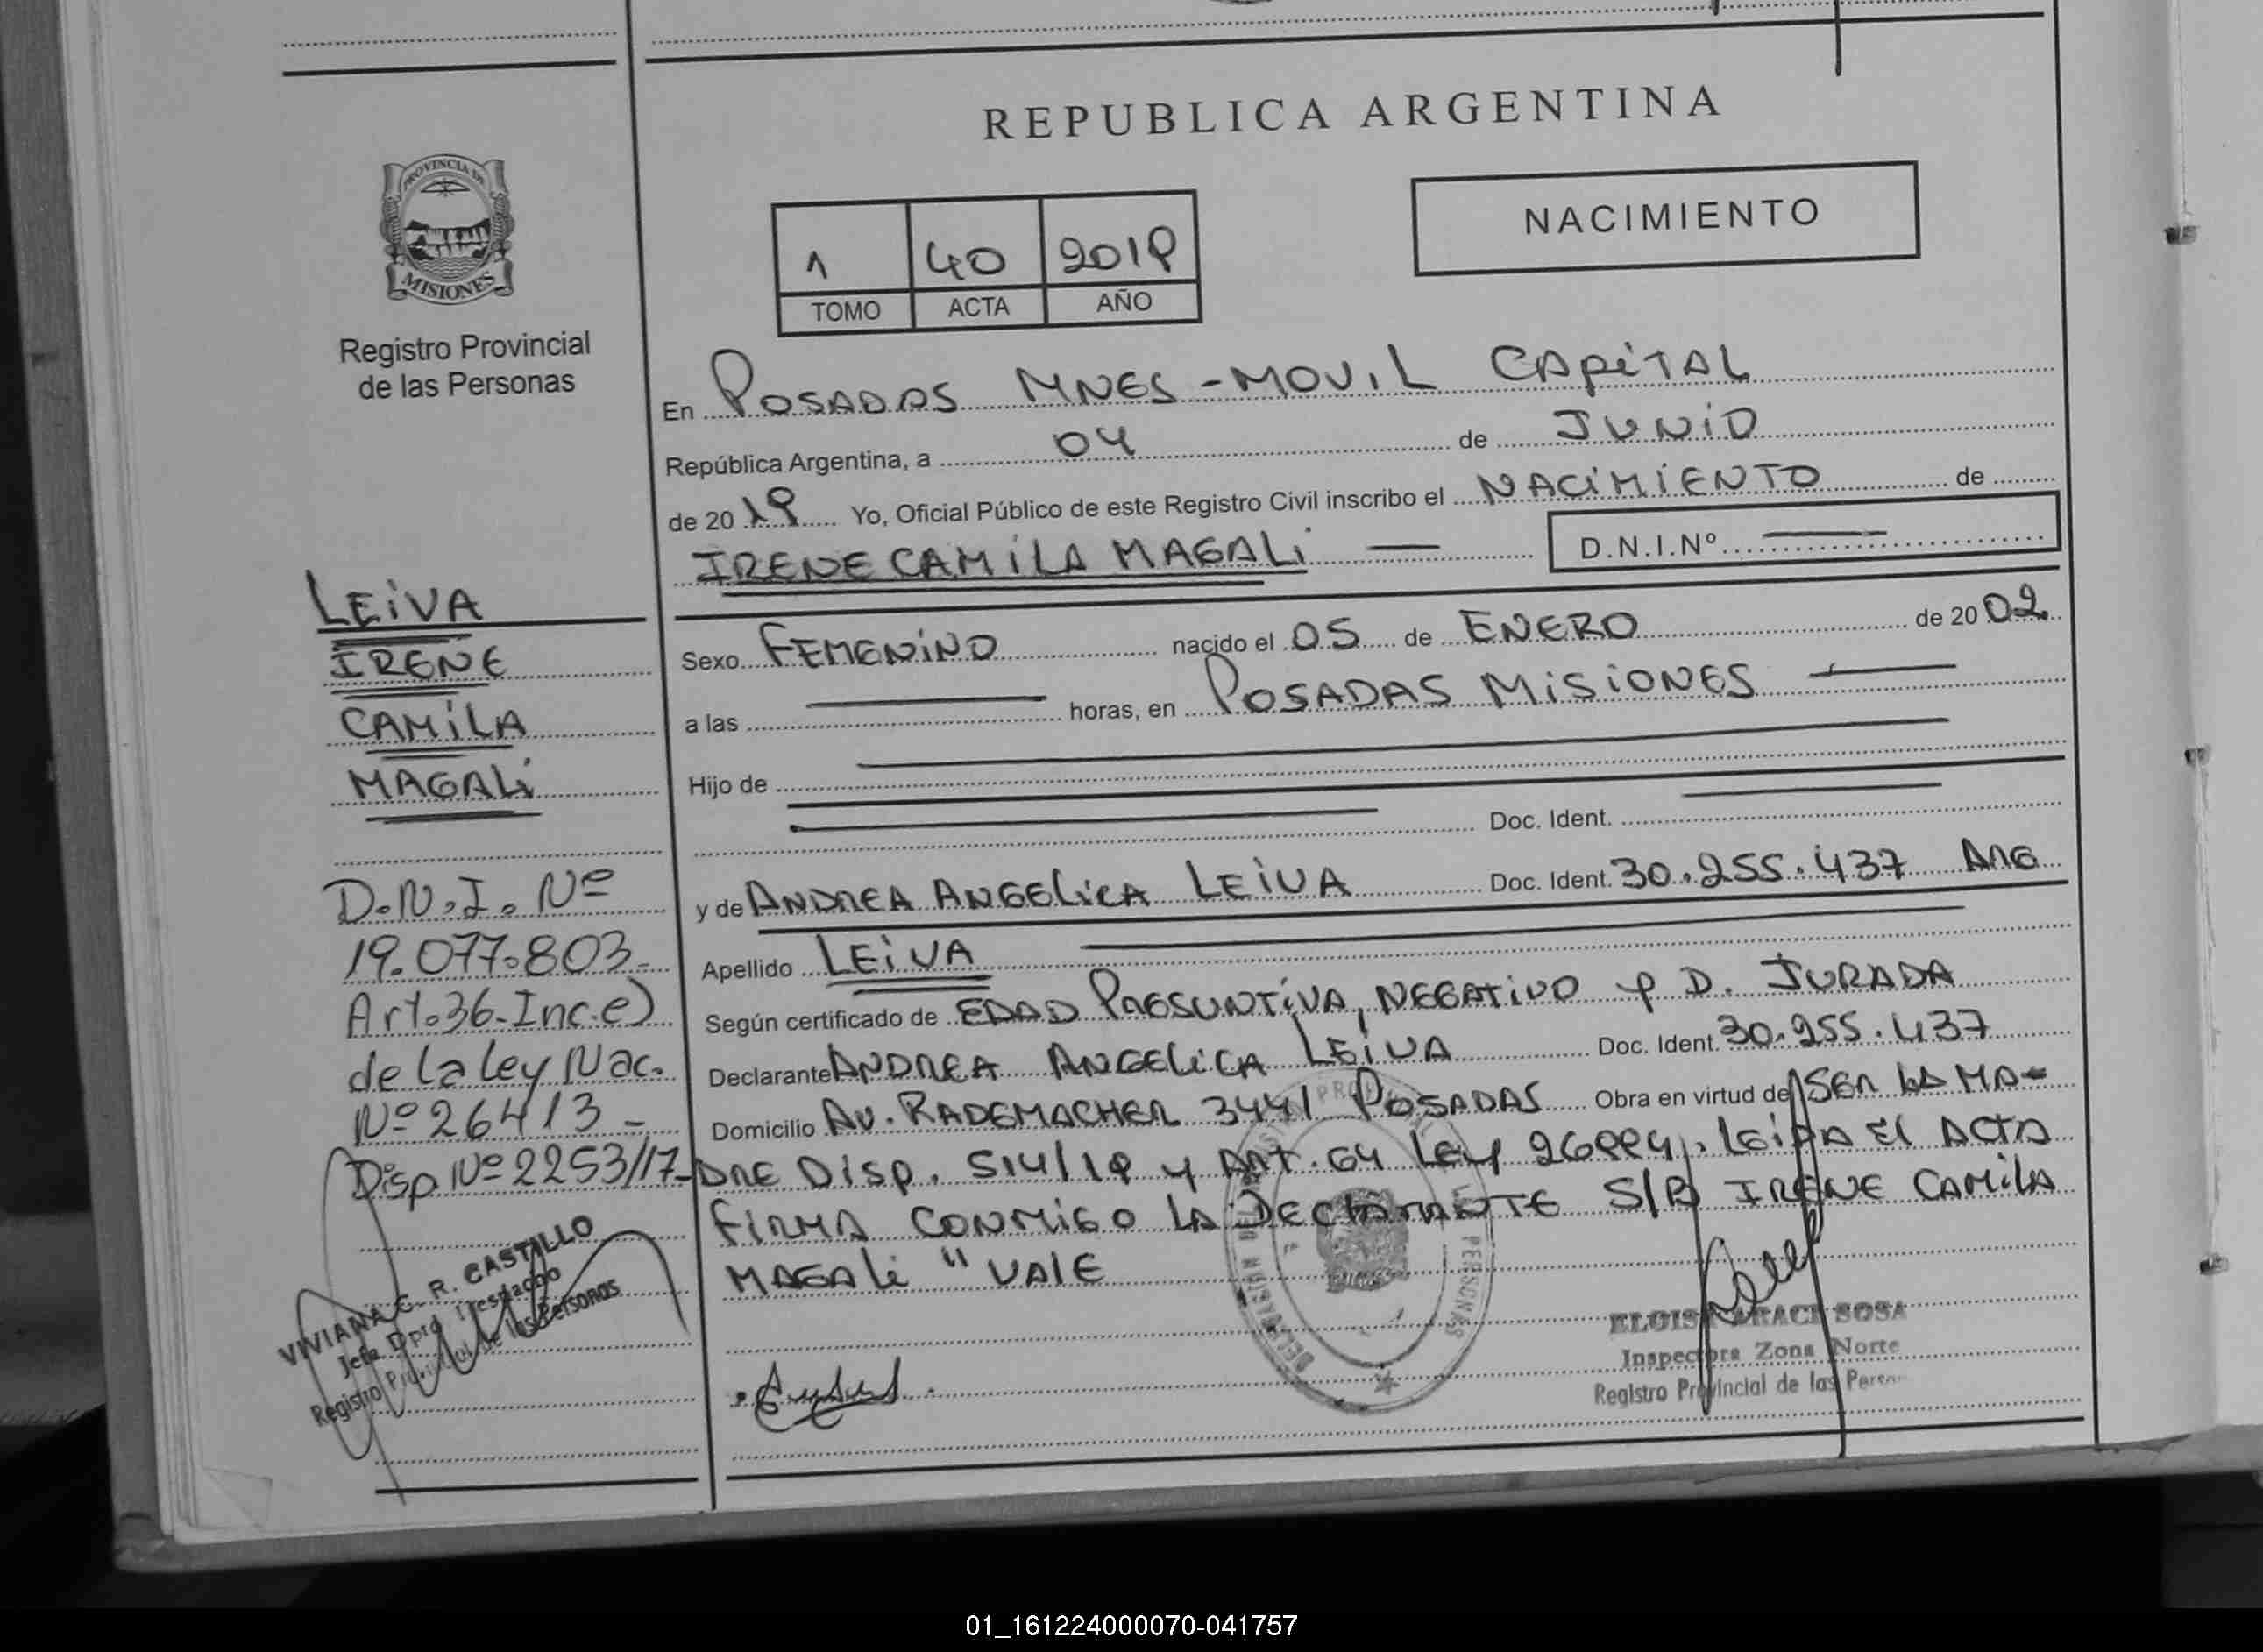 REPUBLICA ARGENTINA
PROVINCIA DE
MISIONES
Registro Provincial
de las Personas
NACIMIENTO
1 40 2019
TOMO ACTA AÑO
En POSADAS MNES-MOVIL CAPITAL
República Argentina, a 04 de JUNIO
de 2019 Yo, Oficial Público de este Registro Civil inscribo el NACIMIENTO de
IRENE CAMILA MAGALI — D.N.I.Nº —
LEIVA
IRENE
CAMILA
MAGALI
Sexo FEMENINO nacido el 05 de ENERO de 2002
a las — horas, en POSADAS MISIONES —
Hijo de
Doc. Ident.
y de ANDREA ANGELICA LEIVA Doc. Ident. 30.255.437 ARG
Apellido LEIVA
Según certificado de EDAD PRESUNTIVA, NEGATIVO y D. JURADA
Declarante ANDREA ANGELICA LEIVA Doc. Ident. 30.255.437
Domicilio AV. RADEMACHER 3441 POSADAS Obra en virtud de SER LA MA-
DRE DISP. 514/19 y ART. 64 LEY 26994. LEIDA El ACTA
FIRMA CONMIGO LA DECLARANTE S/R IRENE CAMILA
MAGALI " VALE
D.N.I. Nº
19.077.803-
Art.36-Inc.e)
de la ley Nac.
Nº 26413-
Disp. Nº 2253/17-
VIVIANA C. R. CASTILLO
Jefa Dpto Despacho
Registro Provincial de las Personas
SOSA
Inspectora Zona Norte
Registro Provincial de las Person
01_161224000070-041757